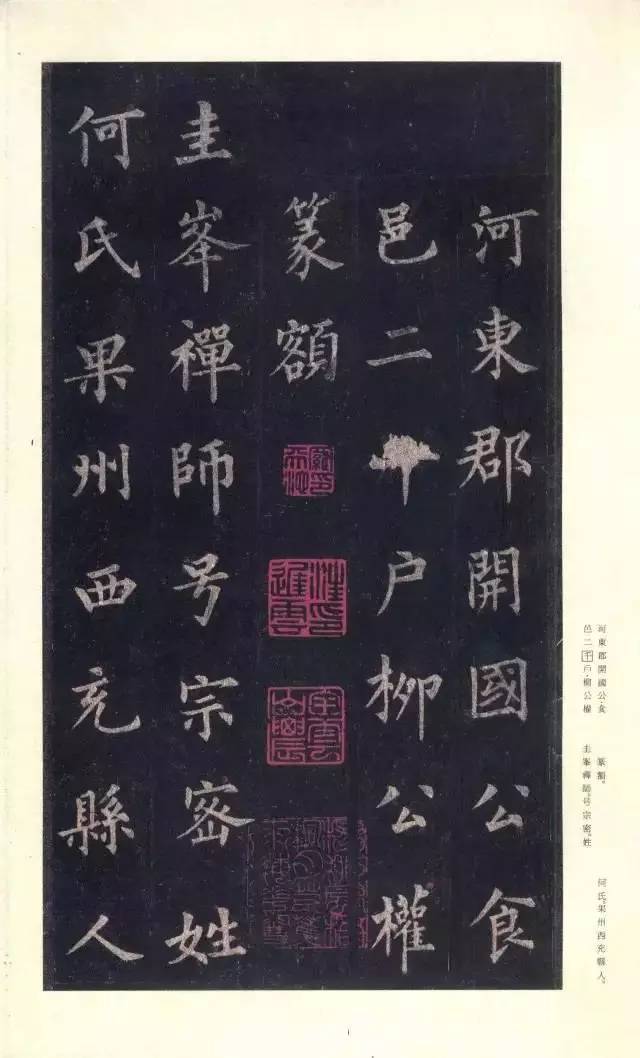 河東郡開國公食
邑二千户柳公權
篆額
圭峯禪師号宗密姓
何氏果州西充縣人
河東郡開國公、食
邑二千戶、柳公權
篆額。
圭峯禪師、号宗密、姓
何氏、果州西充縣人。
1